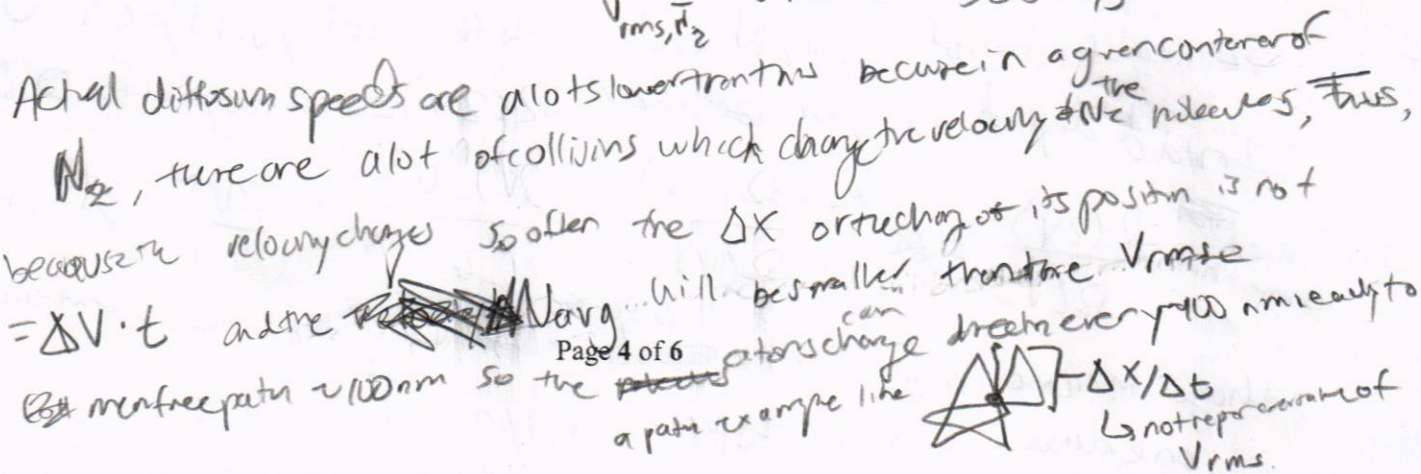 Vrms, N2
Actual diffusion speeds are a lot slower than this because in a given container of
N2, there are a lot of collisions which change the velocity of the N2 molecules, Thus,
because the velocity changes so often the ΔX or the change of its position is not
= ΔV · t and the Vavg will be smaller than the Vrms
Page 4 of 6
mean free path ~100nm so the atoms can change direction every ~100 nm leading to
a path example like ΔX/Δt
↳ not representative of
Vrms.